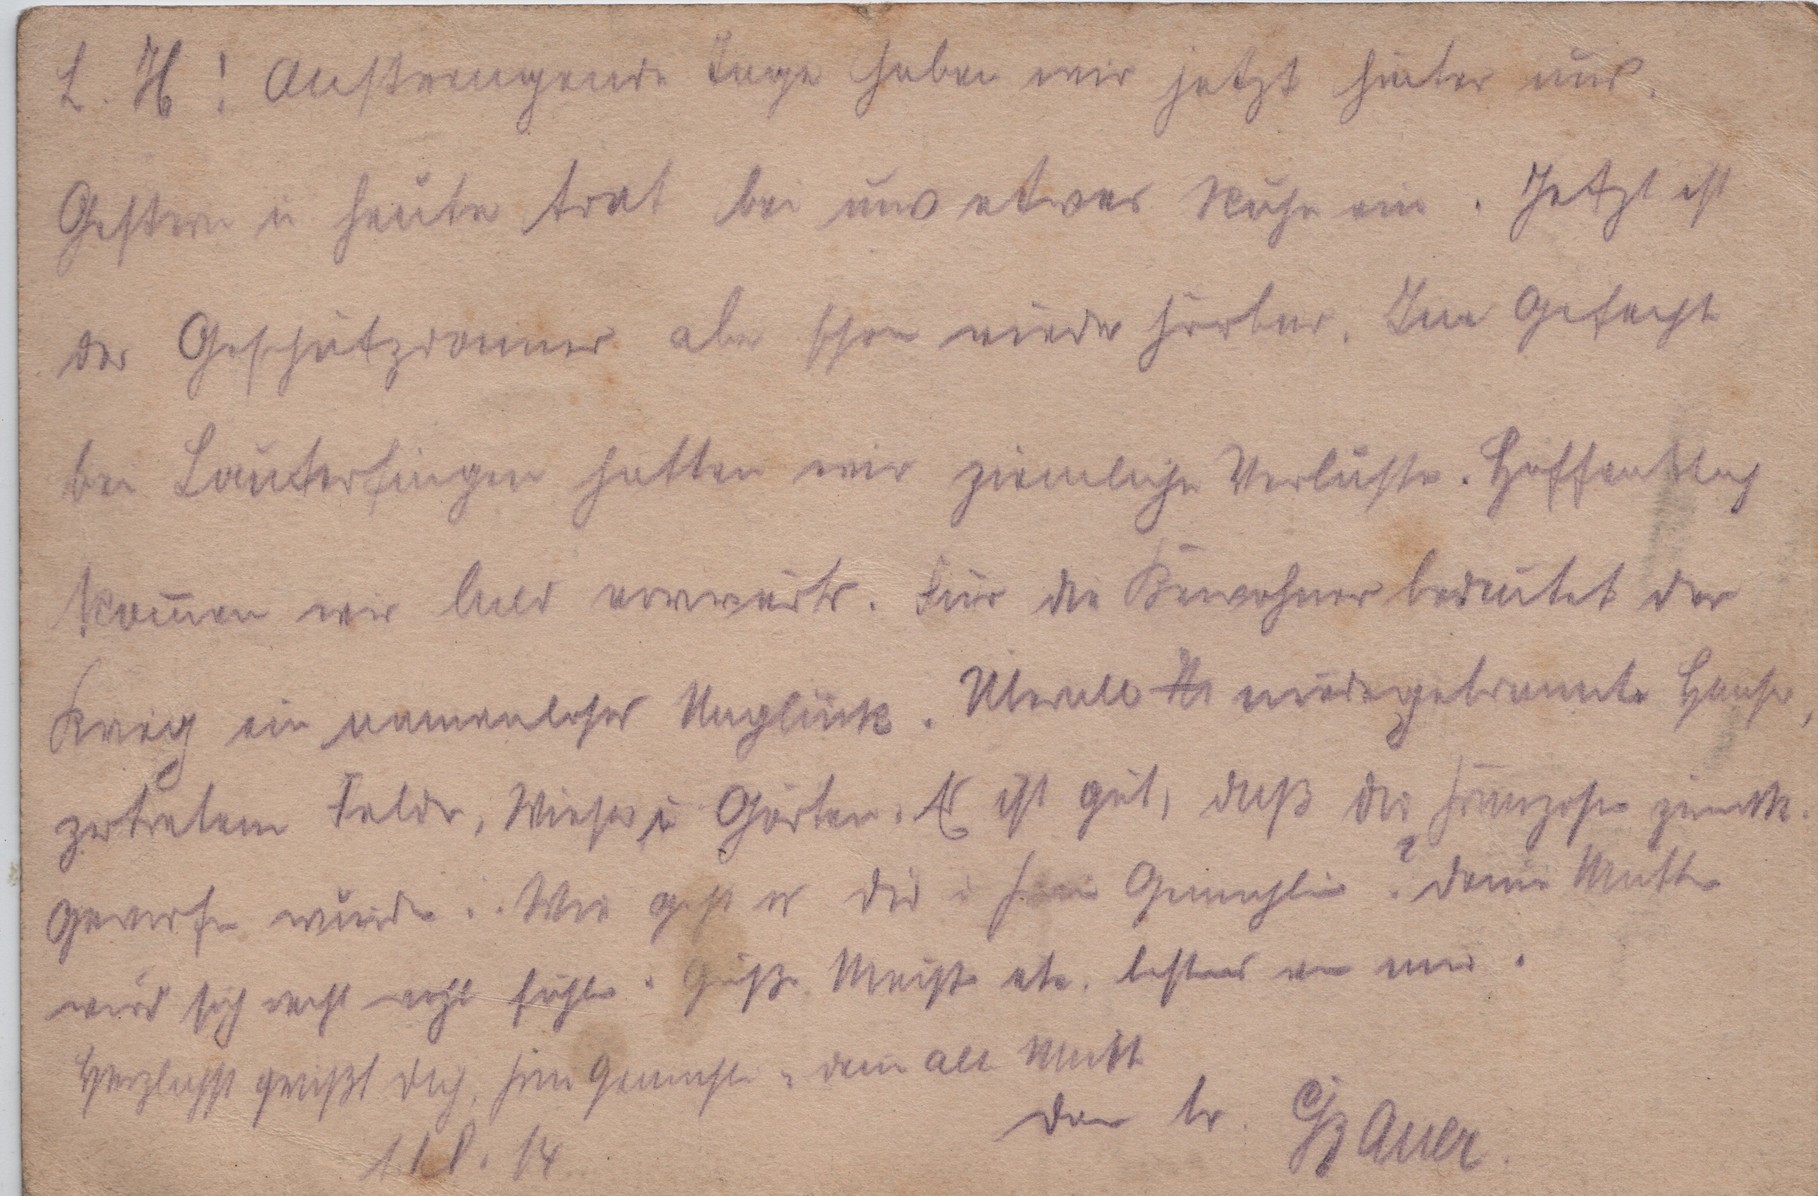 L. H! Anstrengende Tage haben wir jetzt hinter uns.
Gestern u heute trat bei uns etwas Ruhe ein. Jetzt ist
der Geschützdonner aber schon wieder hörbar. Im Gefecht
bei Lauterfingen hatten wir ziemliche Verluste. Hoffentlich
kom̅en wir bald vorwärts. Für die Bewohner bedeutet der
Krieg ein namenloses Unglück. Überall niedergebrannte Häuser,
zertretene Felder, Wiesen u Gärten. Es ist gut, daß die Franzosen zurück-
geworfen wurden. Wie geht es dir Gemahlin? Deine Mutter
wird sich recht fühlen. Grüße etc. bestens von mir.
Herzlichst grüßt dich, Gemahlin u. dein alte Mutter
dein br. Auer.
14